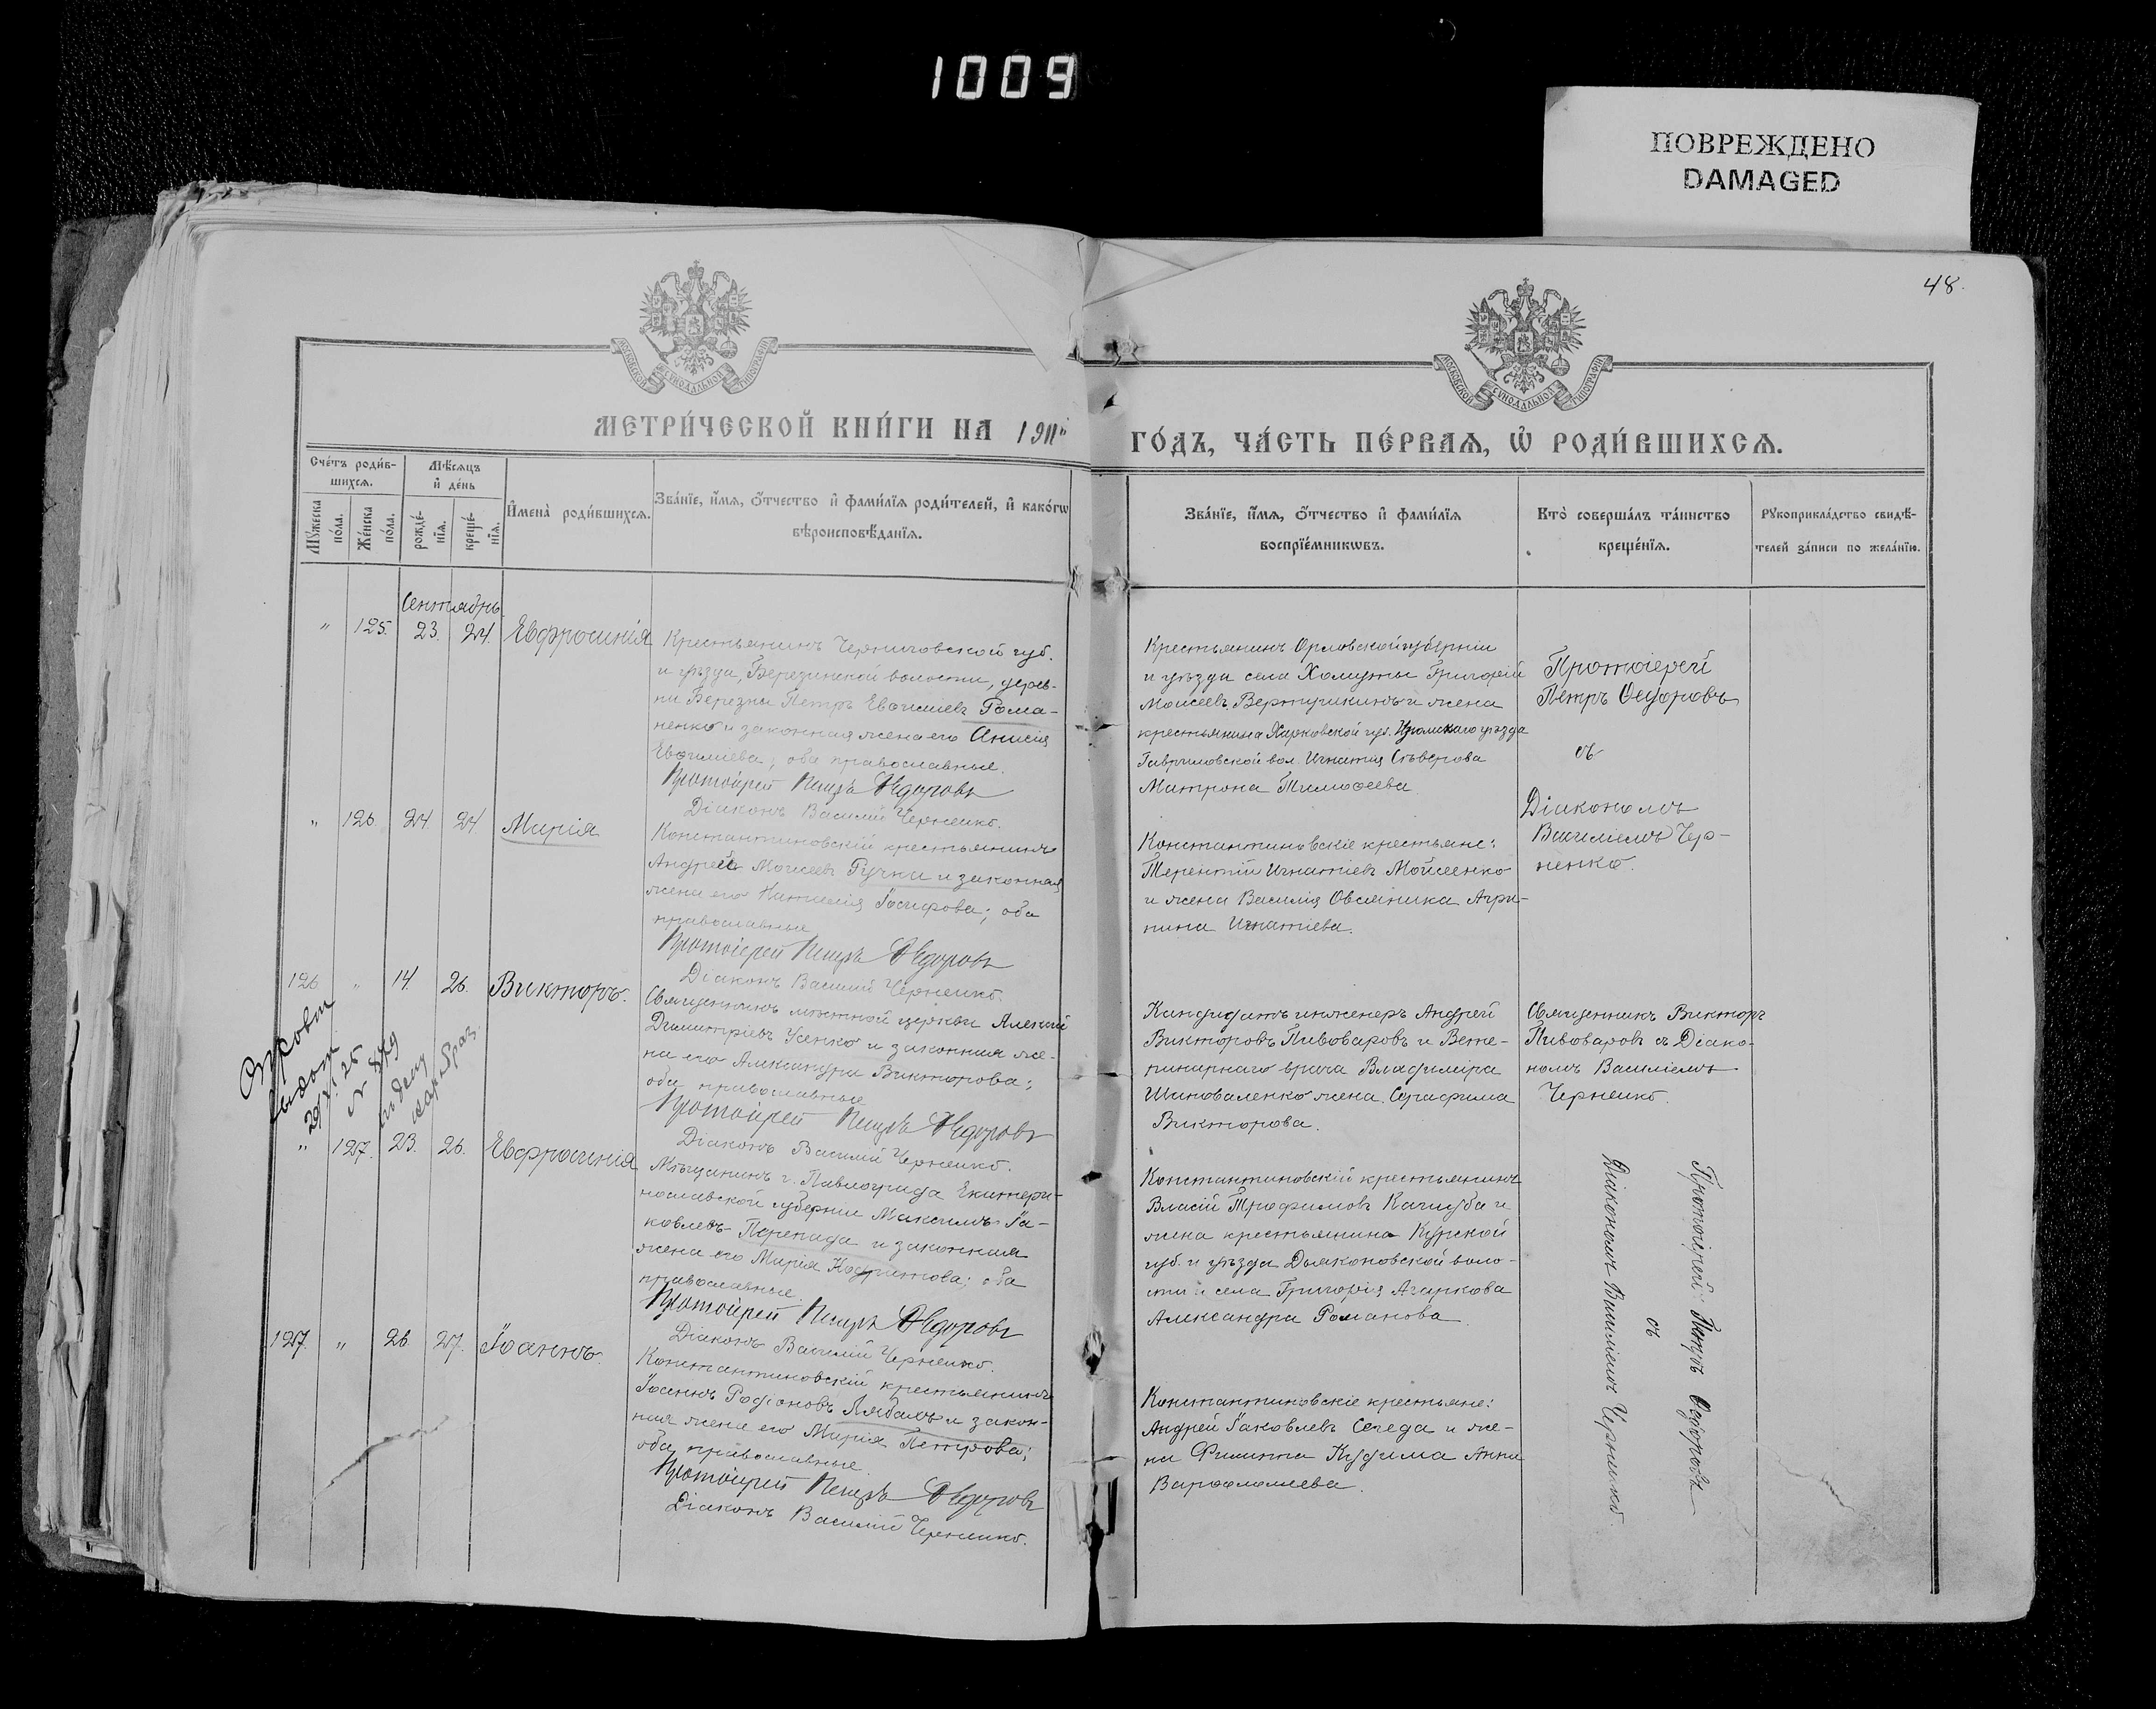 1009
ПОВРЕЖДЕНО
DAMAGED
48.
МОСКОВСКОЙ СѴНОДАЛЬНОЙ ТИПОГРАФІИ
МОСКОВСКОЙ СѴНОДАЛЬНОЙ ТИПОГРАФІИ
МЕТРИ́ЧЕСКОЙ КНИ́ГИ НА 1911й ГО́ДЪ, ЧА́СТЬ ПЕ́РВАѦ, Ѡ҆ РОДИ́ВШИХСѦ.
Сче́тъ роди́в-
шихсѧ.
Мꙋ́жеска по́ла.
Же́нска по́ла.
Мѣ́сѧцъ
и҆ де́нь
рожде́-
нїѧ.
креще́-
нїѧ.
И҆мена̀ роди́вшихсѧ.
Зва́нїе, и҆́мѧ, ѻ҆́тчество и҆ фами́лїѧ роди́телей, и҆ како́гѡ
вѣроисповѣ́данїѧ.
Зва́нїе, и҆́мѧ, ѻ҆́тчество и҆ фами́лїѧ
воспрїе́мникѡвъ.
Кто̀ соверша́лъ та́инство
креще́нїѧ.
Рꙋкоприкла́дство свидѣ́-
телей за́писи по жела́нїю.
Сентябрь
" 125. 23. 24. Евфросинія
Крестьянинъ Черниговской губ.
и уѣзда, Березинской волости, дерев-
ни Березны Петръ Евѳиміевъ Рома-
ненко и законная жена его Анисія
Евѳиміева; оба православные.
Протоіерей Петръ Ѳедоровъ
Діаконъ Василій Черненко.
Крестьянинъ Орловской губерніи
и уѣзда села Хомуты Григорій
Моисеевъ Вертушкинъ и жена
крестьянина Харковской губ. Изюмскаго уѣзда
Гавриловской вол. Игнатія Сѣверова
Матрона Тимоѳеева
Протоіерей
Петръ Ѳедоровъ
съ
Діакономъ
Василіемъ Чер-
ненко.
" 126. 24. 24. Марія
Константиновскій крестьянинъ
Андрей Моисеевъ Ручка и законная
жена его Наталія Іосифова; оба
православные
Протоіерей Петръ Ѳедоровъ
Діаконъ Василій Черненко.
Константиновскіе крестьяне:
Терентій Игнатіевъ Мойсеенко
и жена Василія Овсяника Агри-
пина Игнатіева.
126. " 14. 26. Викторъ.
Священникъ мѣстной церкви Алексій
Димитріевъ Усенко и законная же-
на его Александра Викторова;
оба православные
Протоіерей Петръ Ѳедоровъ
Діаконъ Василій Черненко.
Кандидатъ инженеръ Андрей
Викторовъ Пивоваровъ и Вете-
ринарнаго врача Владиміра
Шаповаленко жена Серафима
Викторова.
Священникъ Викторъ
Пивоваровъ съ Діако-
номъ Василіемъ
Черненко.
выдан
" 127. 23. 26. Евфросинія
Мѣщанинъ г. Павлограда Екатери-
нославской губерніи Максимъ Іа-
ковлевъ Перепада и законная
жена его Марія; оба
православные.
Протоіерей Петръ Ѳедоровъ
Діаконъ Василій Черненко.
Константиновскій крестьянинъ
Власій Трофимовъ Качауба и
жена крестьянина Курской
губ. и уѣзда Дьяконовской воло-
сти и села Григорія Агаркова
Александра Романова.
Протоіерей Петръ Ѳедоровъ
съ
Діакономъ Василіемъ Черненко.
127. " 26. 27. Іоаннъ.
Константиновскій крестьянинъ
Іоаннъ Родіоновъ Лябахъ и закон-
ная жена его Марія Петрова;
оба православные.
Протоіерей Петръ Ѳедоровъ
Діаконъ Василій Черненко.
Константиновскіе крестьяне:
Андрей Іаковлевъ Сегеда и же-
на Филиппа Кудима Анна
Варѳоломеева.